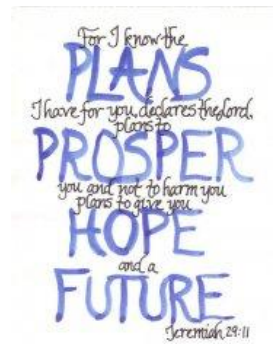 For I know the
PLANS
I have for you, declares the Lord,
plans to
PROSPER
you and not to harm you
plans to give you
HOPE
and a
FUTURE
Jeremiah 29:11